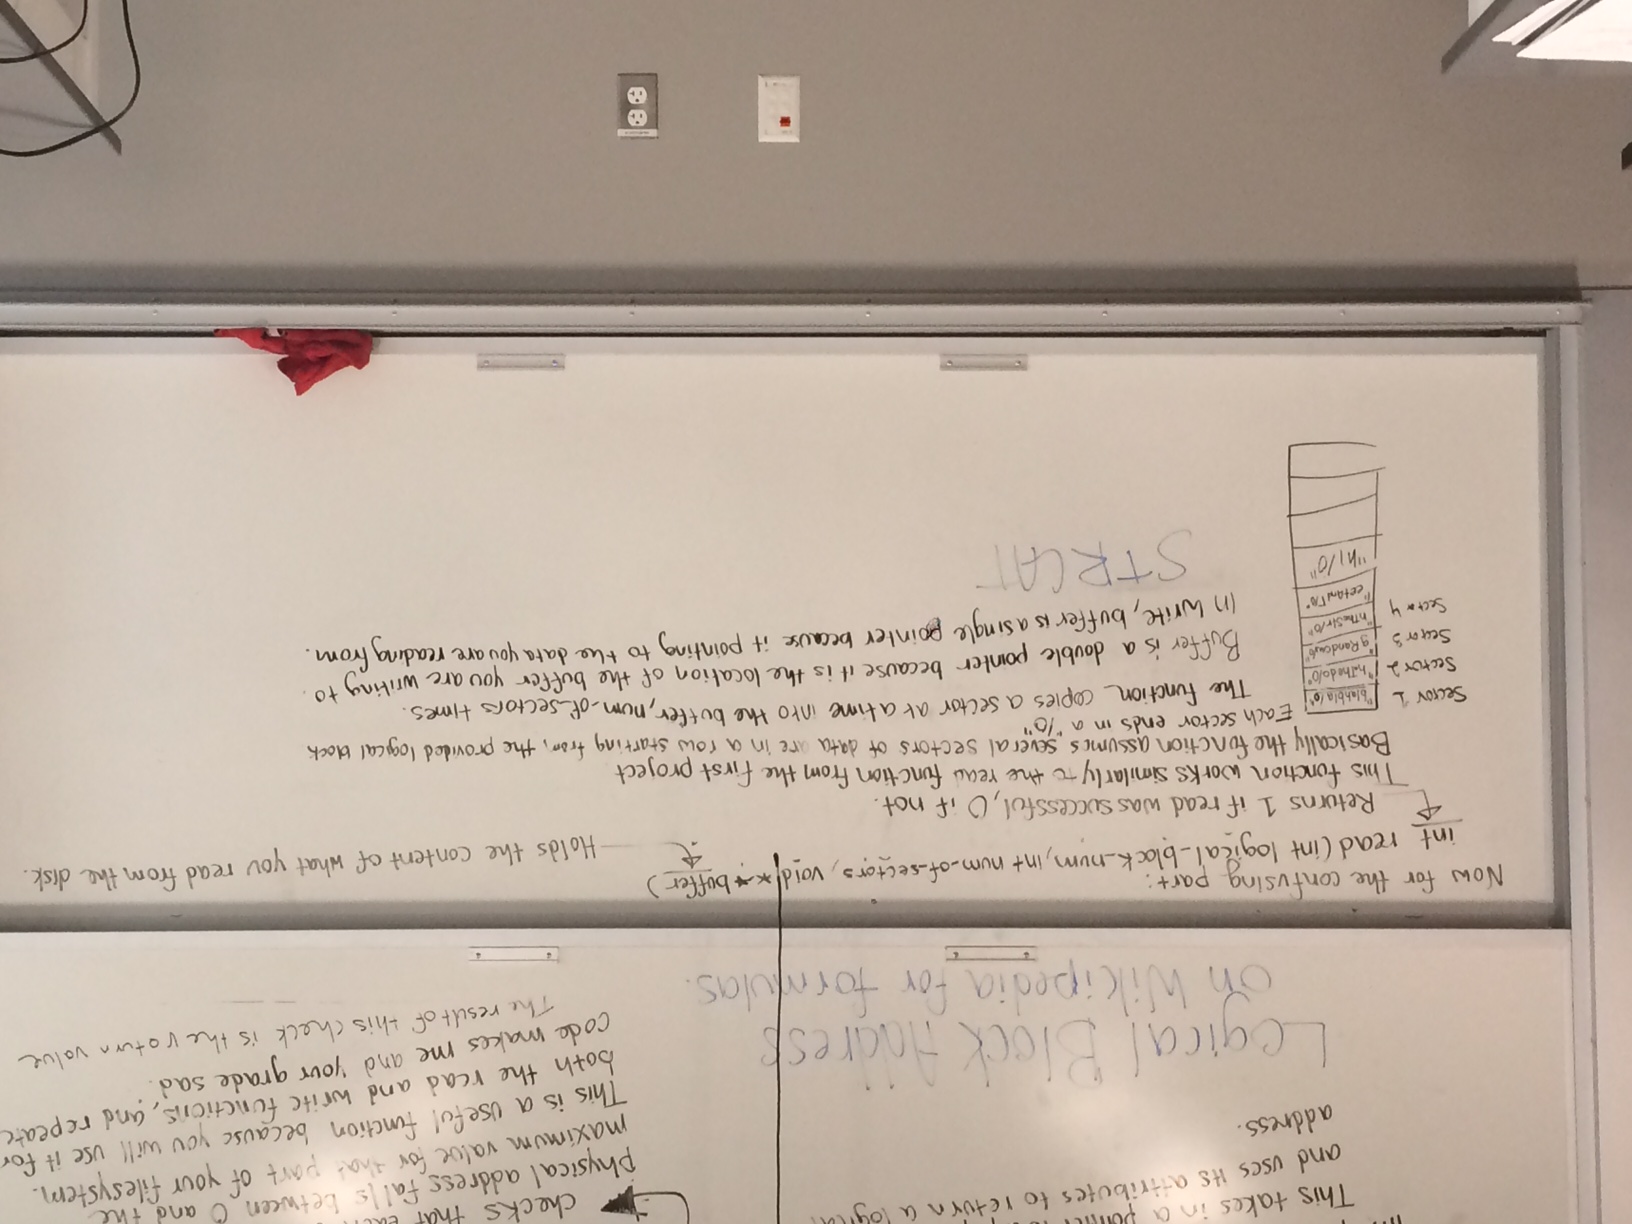 This takes in a
and uses its attributes to return a logical
address.
Logical Block Address
on Wikipedia for formulas.
checks that
physical address falls between 0 and the
maximum value for that part of your filesystem.
This is a useful function because you will use it for
both the read and write functions, and repeate
code makes me and your grade sad.
The result of this check is the return value
Now for the confusing part:
int read(int logical_block_num, int num_of_sectors, void **buffer)
Holds the content of what you read from the disk.
Returns 1 if read was successful, 0 if not.
This function works similarly to the read function from the first project
Basically the function assumes several sectors of data are in a row starting from the provided logical block
Each sector ends in a "/0"
The function copies a sector at a time into the buffer, num_of_sectors times.
Buffer is a double pointer because it is the location of the buffer you are writing to.
In write, buffer is a single pointer because it pointing to the data you are reading from.
STRCAT
Sector 1 "blahbla/0"
Sector 2 "hThedo/0"
Sector 3
Sector 4 "nTheStr/0"
"eetAndT/0"
"hi/0"